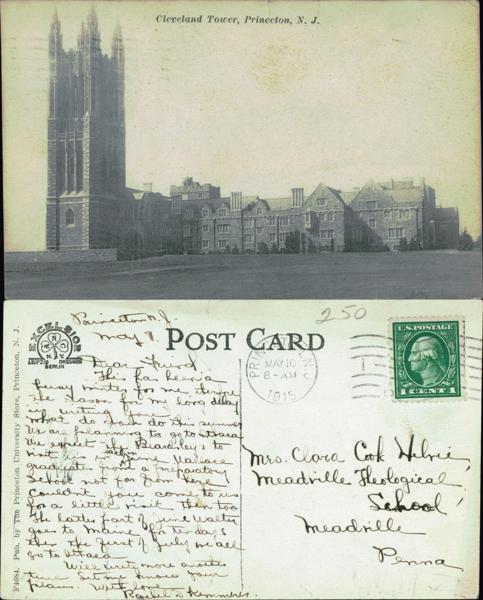 Cleveland Tower, Princeton, N. J.
F4684. Pub. by The Princeton University Store, Princeton, N. J.
EXCELSIOR
N.Y.
LEIPZIG DRESDEN
BERLIN
POST CARD
250
PRINCETON
MAY 10
8-AM
1915
U.S. POSTAGE
1 CENT 1
Princeton N.J.
May 9.
Dear Friend,
This has been a
busy winter for me, hence
the reason for my long delay
in writing you.
What do you do this summer
We are planning to go to Ithaca
We expect the to
visit in June Wallace
graduates from a preparatory
School not far from here
Couldn't you come to us
for a little visit then too
The latter part of June Walter
goes to Maine for ten days
then the first of July we all
go to Ithaca
Will write more another
time Let me know your
plans. With love
Mrs. Clara Cook
Meadville Theological
School
Meadville
Penna